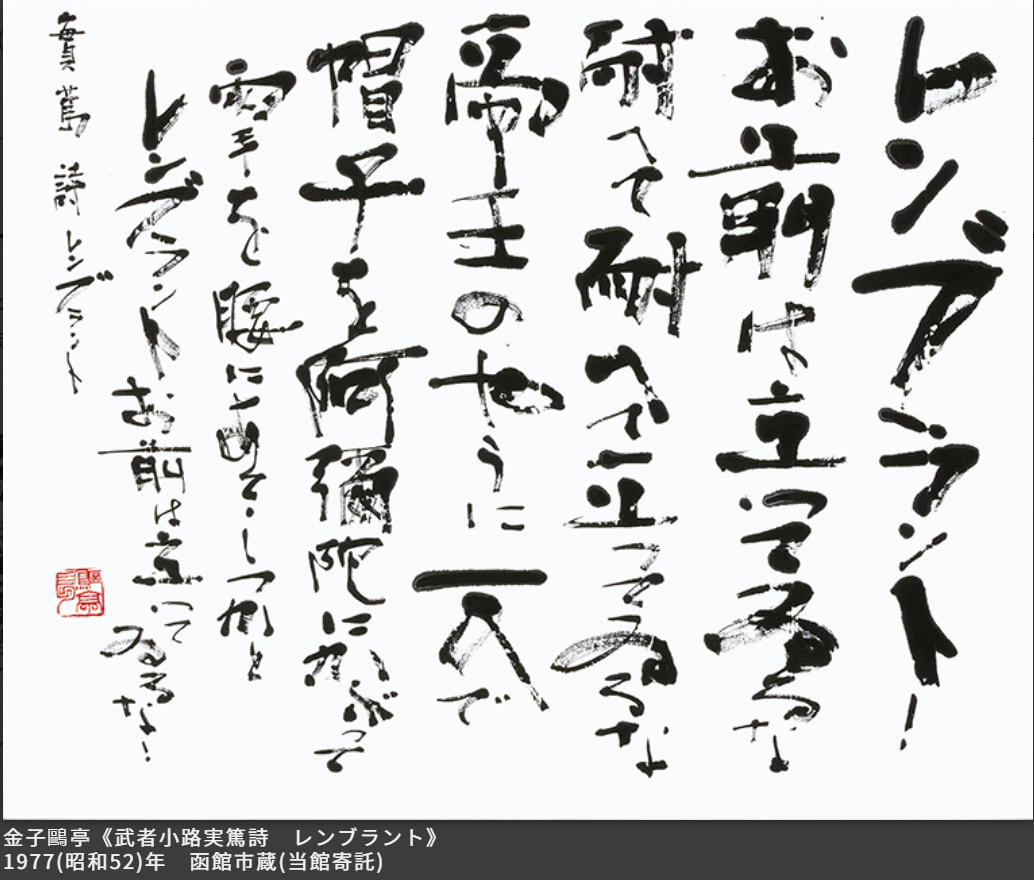 レンブラント!
お前は立つてゐるな
耐へて耐へて立つてゐるな
帝王のやうに一人で
帽子を阿彌陀にかぶつて
両手を腰にあてゝしつかと
レンブラントお前は立つてゐるな!
實篤詩 レンブラント
金子鷗亭《武者小路実篤詩　レンブラント》
1977(昭和52)年　函館市蔵(当館寄託)